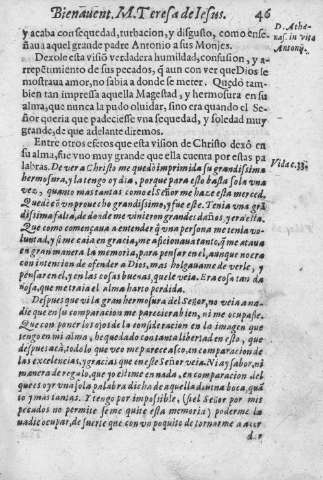 Bienauent. M. Teresa de Iesus. 46
y acaba con sequedad, turbacion, y disgusto, como ense-
ñaua aquel grande padre Antonio a sus Monjes.
D. Atha-
nas. in vita
Antonij.
Dexole esta visiō verdadera humildad, confusion, y a-
rrepētimiento de sus pecados, q̄ aun con ver que Dios le
mostraua amor, no sabia a donde se meter. Quedó tam-
bien tan impressa aquella Magestad, y hermosura en su
alma, que nunca la pudo oluidar, sino era quando el Se-
ñor queria que padeciesse vna sequedad, y soledad muy
grande, de que adelante diremos.
Entre otros efetos que esta vision de Christo dexò en
su alma, fue vno muy grande que ella cuenta por estas pa
labras. De ver a Christo me quedò imprimida su grandissima
Vida c. 33.
hermosura, y la tengo oy dia, porque para esto basta sola vna
vez, quanto mas tantas como el Señor me haze esta merced.
Quedè cō vn prouecho grandissimo, y fue este. Tenia vna grā
dissima falta, de donde me vinieron grandes daños, y era esta.
Que como començaua a entender q̄ vna persona me tenia vo-
luntad, y si me caia en gracia, me aficionaua tanto, q̄ me ataua
en gran manera la memoria, para pensar en el, aunque no era
con intencion de ofender a Dios, mas holgauame de verle, y
pensar en el, y en las cosas buenas, que le veia. Era cosa tan da
ñosa, que me traia el alma harto perdida.
Despues que vi la gran hermosura del Señor, no veia a na-
die que en su comparacion me pareciesse bien, ni me ocupasse.
Que con poner los ojos de la consideracion en la imagen que
tengo en mi alma, he quedado con tanta libertad en esto, que
despues acà, todo lo que veo me parece asco, en comparacion de
las excelencias, y gracias que en este Señor veia. Ni ay saber, ni
manera de regalo, que yo estime en nada, en comparacion del
que es oyr vna sola palabra dicha de aquella diuina boca, quā
to y mas tantas. Y tengo por impossible, (si el Señor por mis
pecados no permite se me quite esta memoria) poderme la
nadie ocupar, de suerte que con vn poquito de tornarme a acor
dar